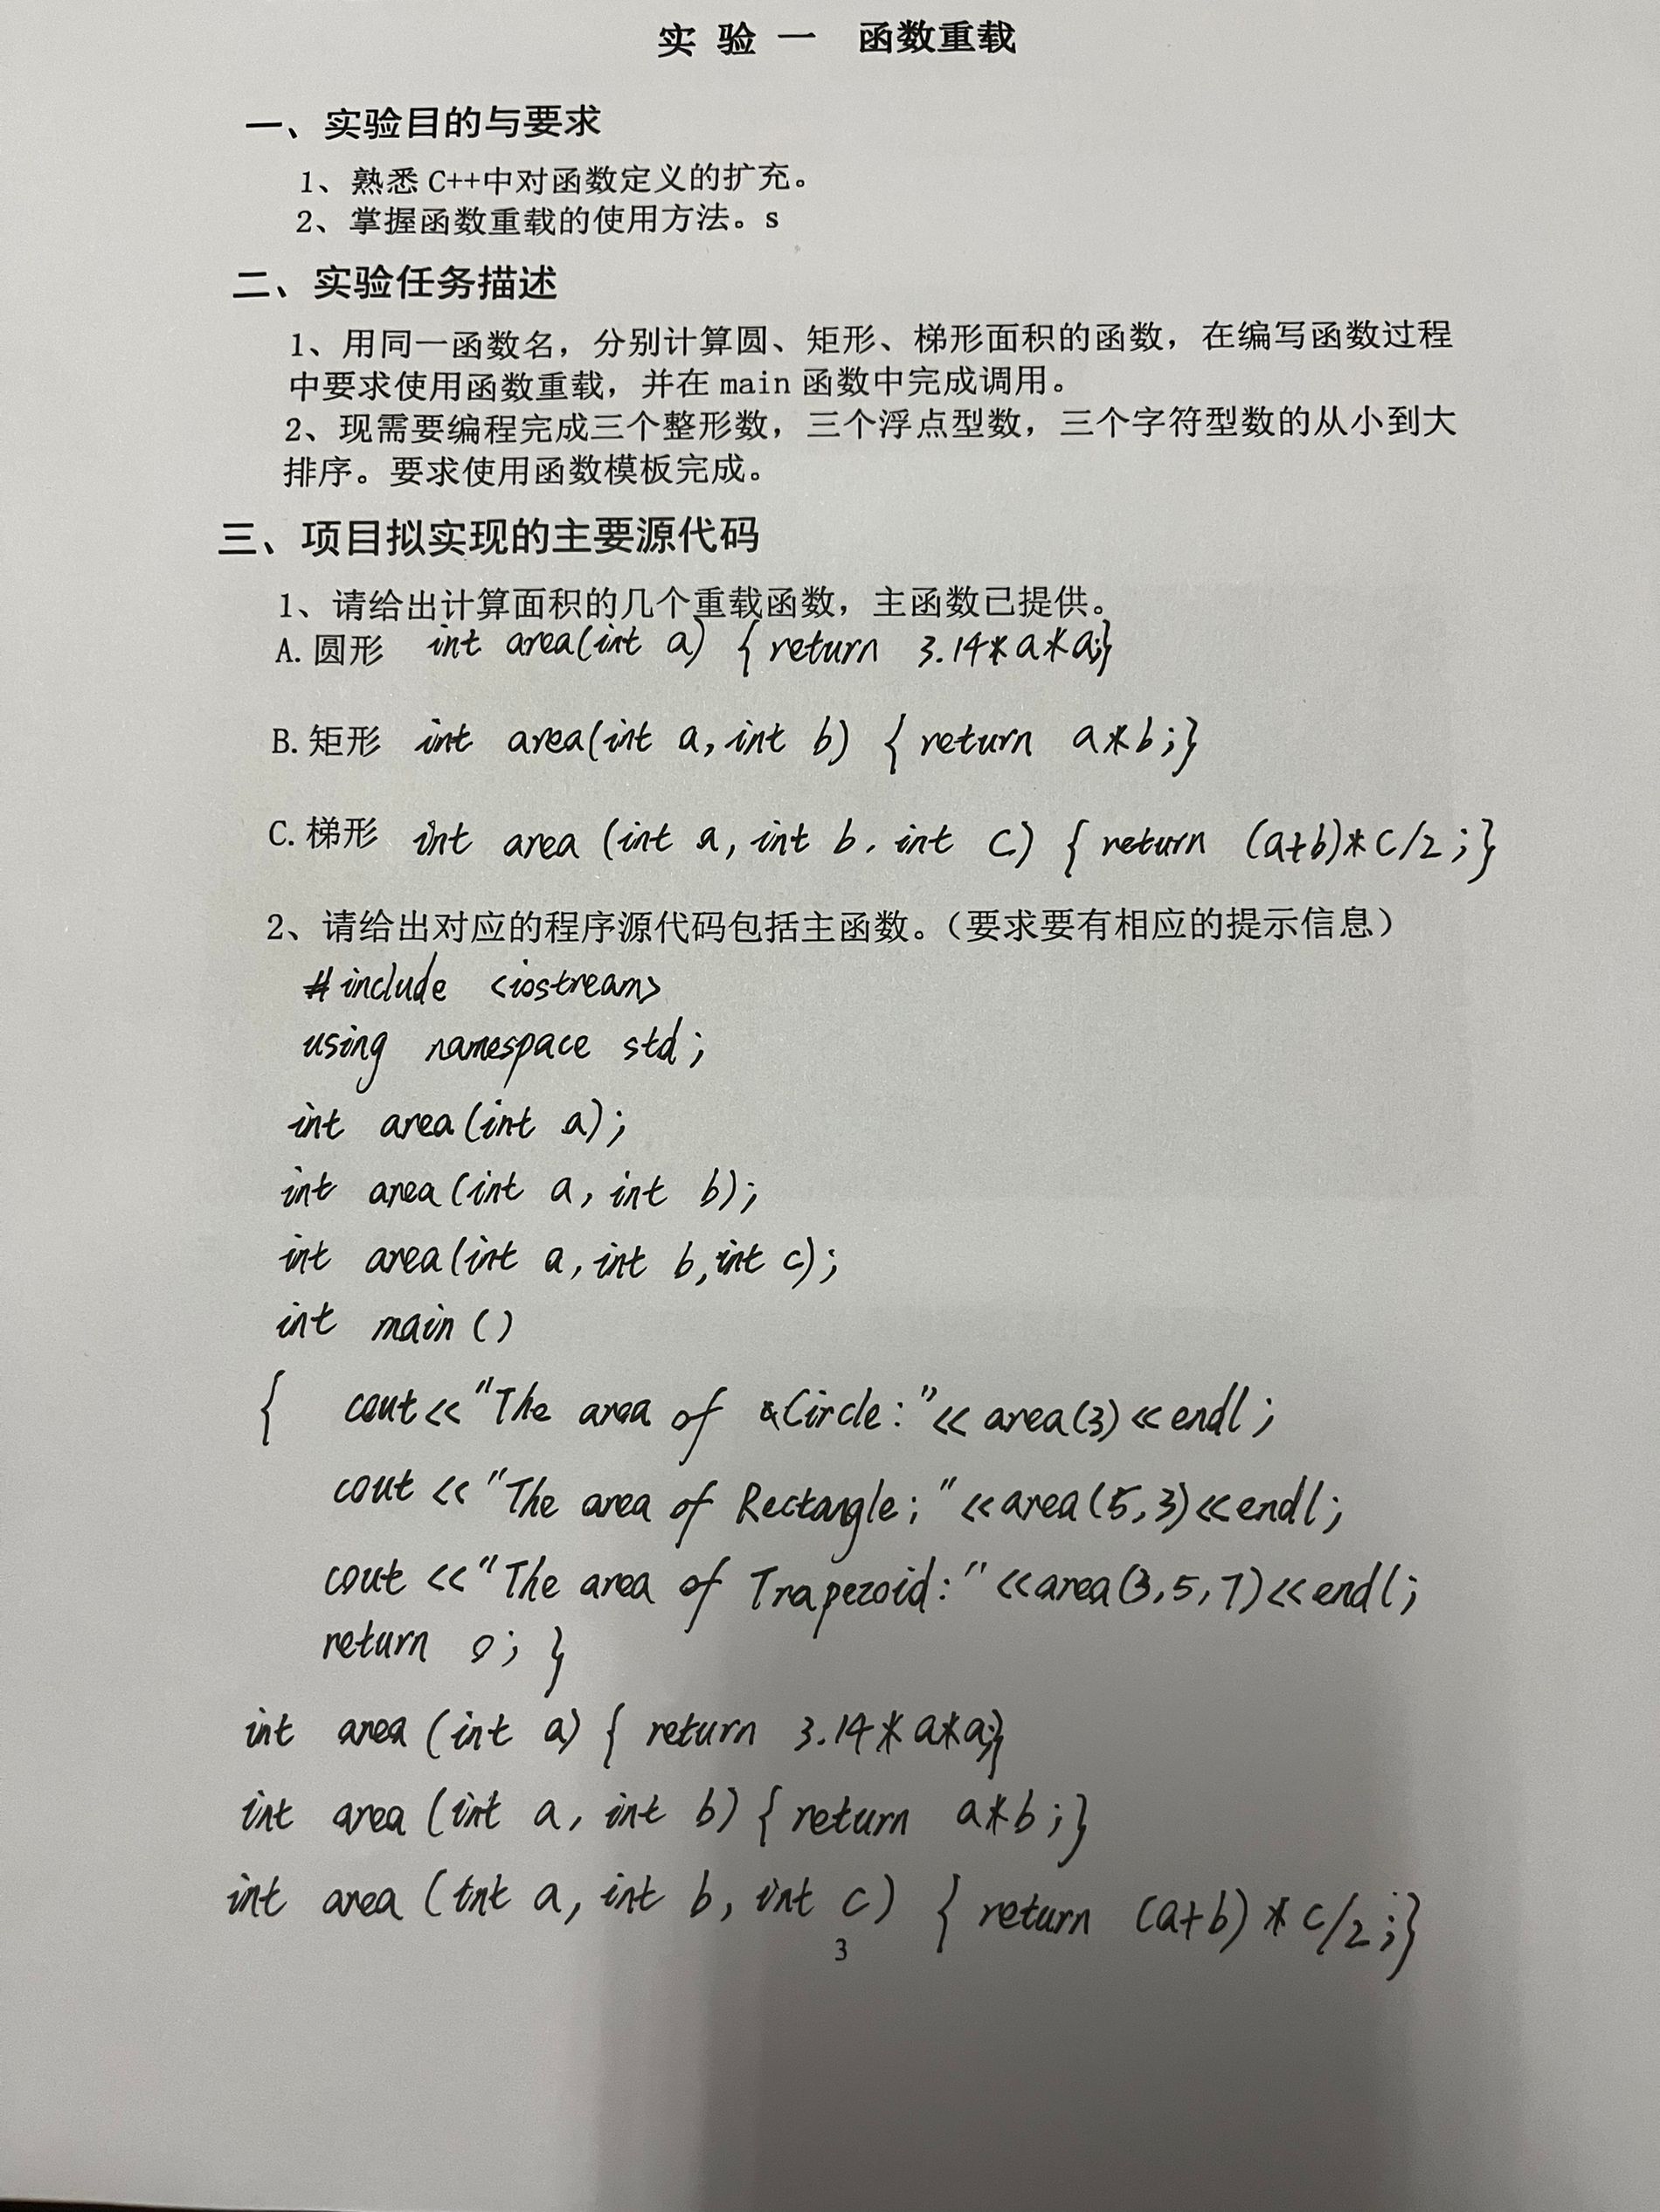 实 验 一 函数重载
一、实验目的与要求
1、熟悉 C++中对函数定义的扩充。
2、掌握函数重载的使用方法。s
二、实验任务描述
1、用同一函数名，分别计算圆、矩形、梯形面积的函数，在编写函数过程
中要求使用函数重载，并在 main 函数中完成调用。
2、现需要编程完成三个整形数，三个浮点型数，三个字符型数的从小到大
排序。要求使用函数模板完成。
三、项目拟实现的主要源代码
1、请给出计算面积的几个重载函数，主函数已提供。
A. 圆形 int area(int a) { return 3.14*a*a;}
B. 矩形 int area(int a, int b) { return a*b;}
C. 梯形 int area (int a, int b, int c) { return (a+b)*c/2;}
2、请给出对应的程序源代码包括主函数。（要求要有相应的提示信息）
#include <iostream>
using namespace std;
int area(int a);
int area(int a, int b);
int area(int a, int b, int c);
int main ()
{ cout<<"The area of Circle:"<< area(3)<<endl;
cout <<"The area of Rectangle:"<<area(5,3)<<endl;
cout <<"The area of Trapezoid:"<<area(3,5,7)<<endl;
return 0; }
int area (int a) { return 3.14*a*a;}
int area (int a, int b) { return a*b;}
int area (int a, int b, int c) { return (a+b)*c/2;}
3